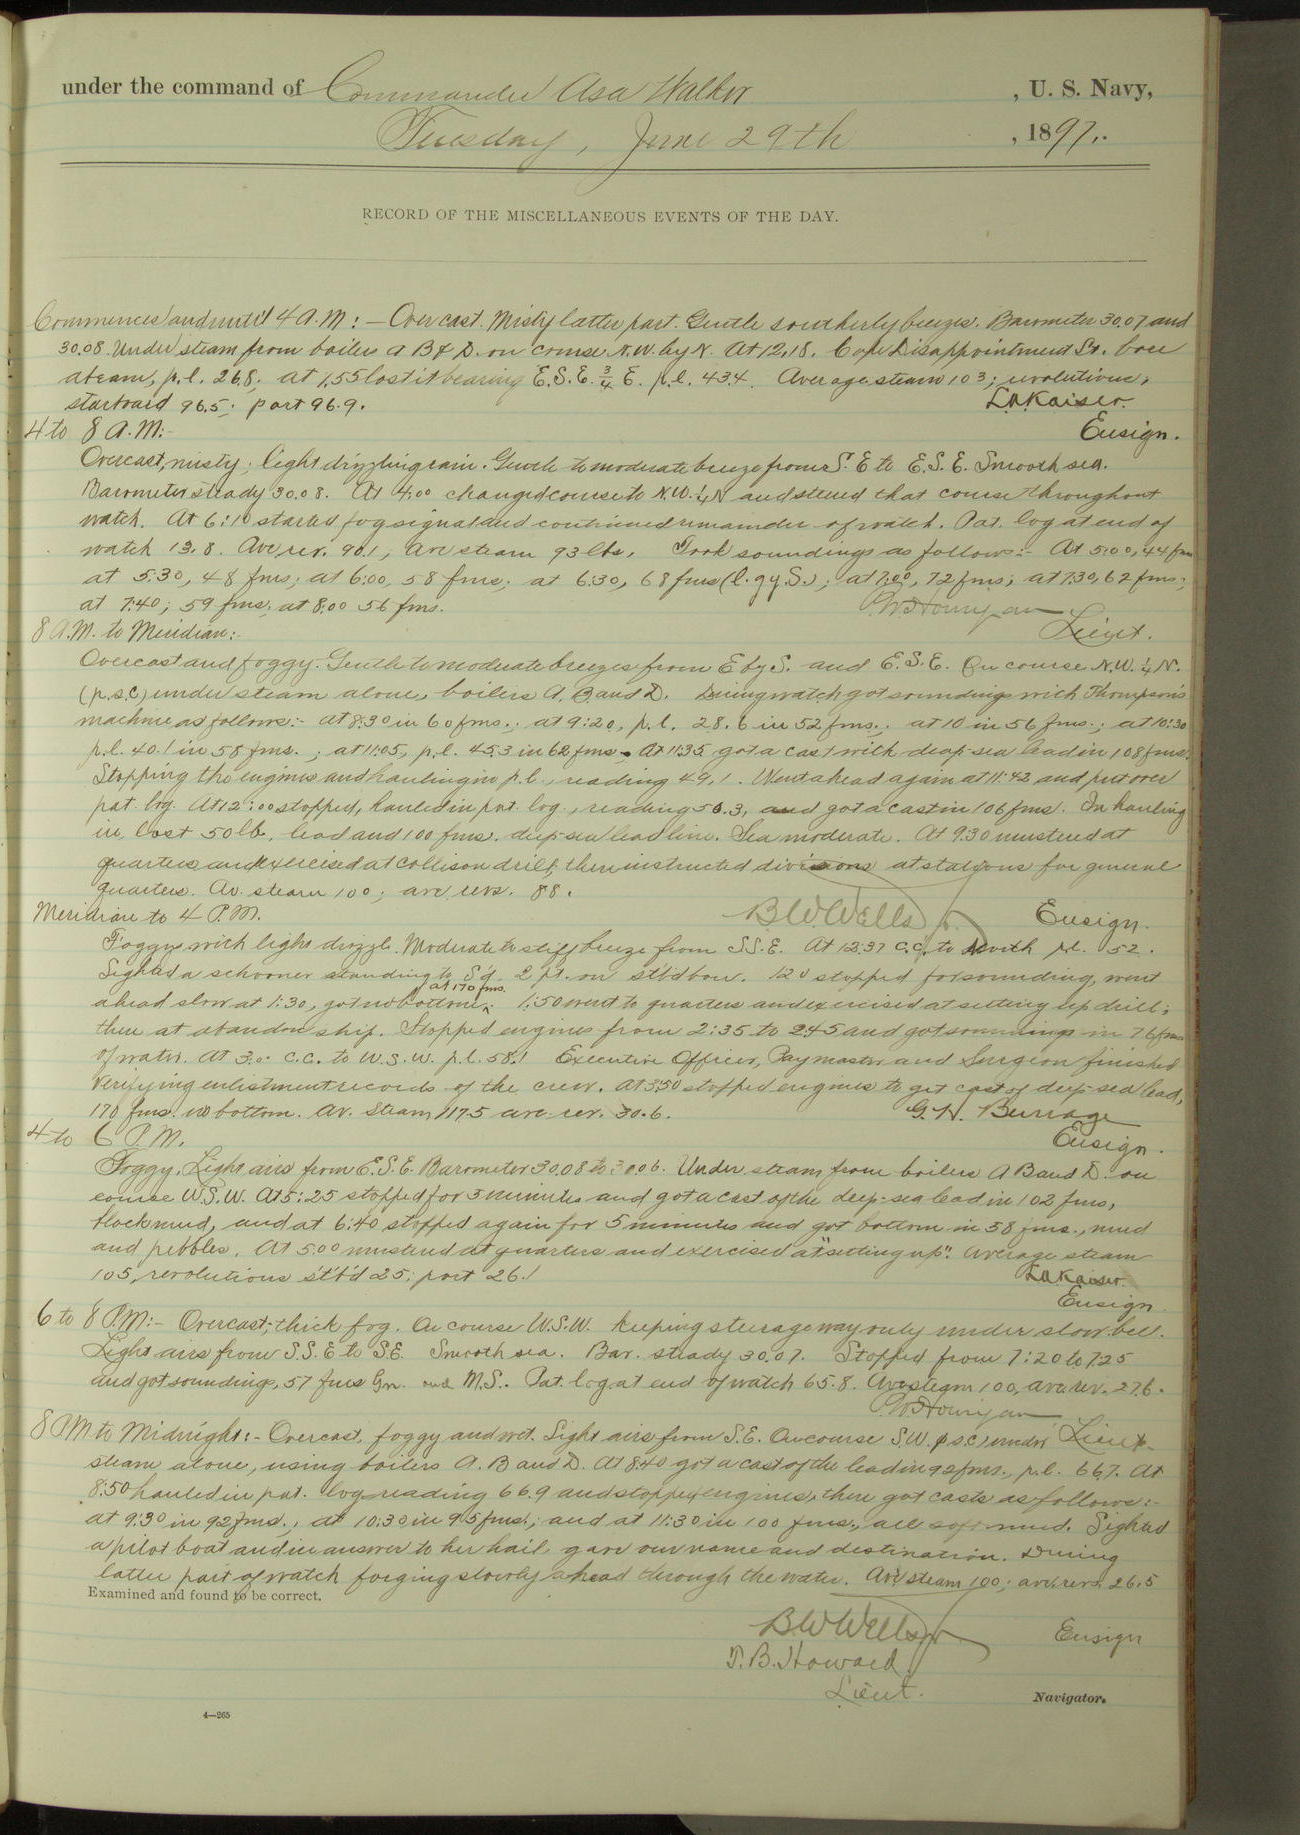 under the command of Commander Asa Walker, U. S. Navy,
Tuesday, June 29th, 1897.
RECORD OF THE MISCELLANEOUS EVENTS OF THE DAY.
Commences and until 4 A.M: — Overcast. Misty latter part. Gentle southerly breezes. Barometer 30.07 and
30.08. Under steam from boilers A B & D. on course N.W. by N. At 12,18. Cape Disappointment Lt. bore
abeam, p.l. 26,8; at 1,55 lost it bearing E.S.E. 3/4 E. p.l. 43.4. Average steam 103; revolutions,
starboard 96.5; port 96.9. L.A. Kaiser.
4 to 8 A.M:- Ensign.
Overcast, misty; light drizzling rain. Gentle to moderate breeze from S.E to E.S.E. Smooth sea.
Barometer steady 30.08. At 4:00 changed course to N.W. 1/4 N and steered that course throughout
watch. At 6:10 started fog signal and continued remainder of watch. Pat. log at end of
watch 13.8. Ave rev. 90.1, ave steam 93 lbs, Took soundings as follows:- At 5:00, 44 fms
at 5:30, 48 fms; at 6:00, 58 fms; at 6:30, 68 fms (l. gy S.); at 7:00, 72 fms; at 7:30, 62 fms;
at 7:40; 59 fms; at 8:00 56 fms. P.W. Hourigan
8 A.M. to Meridian:- Lieut.
Overcast and foggy. Gentle to moderate breezes from E by S. and E.S.E. On course N.W. 1/4 N.
(p.s.c) under steam alone, boilers A, B and D. During watch got soundings with Thompson's
machine as follows:- at 8:30 in 60 fms.; at 9:20, p.l. 28.6 in 52 fms.; at 10 in 56 fms.; at 10:30
p.l. 40.1 in 58 fms.; at 11:05, p.l. 45.3 in 62 fms. At 11:35 got a cast with deep-sea lead in 108 fms.
Stopping the engines and hauling in p.l., reading 49,1. Went ahead again at 11:42 and put over
pat. log. At 12:00 stopped, hauled in pat. log., reading 50.3, and got a cast in 106 fms. In hauling
in, lost 50 lb. lead and 100 fms. deep-sea lead line. Sea moderate. At 9:30 mustered at
quarters and exercised at collision drill, then instructed divisions at stations for general
quarters. Av. steam 100; ave revs. 88.
Meridian to 4 P.M. B.W. Wells Jr. Ensign.
Foggy with light drizzle. Moderate to stiff breeze from S.S.E. At 12.37 c.c. to South p.l. 52.
Sighted a schooner standing to Sd. 2 pt. on stbd bow. 120 stopped for sounding, went
ahead slow at 1:30, got no bottom at 170 fms. 1:50 went to quarters and exercised at setting up drill;
then at abandon ship. Stopped engines from 2:35 to 2:45 and got soundings in 76 fms
of water. At 3.00 c.c. to W.S.W. p.l. 58.1 Executive Officer, Paymaster and Surgeon finished
verifying enlistment records of the crew. At 3:50 stopped engines to get cast of deep-sea lead,
170 fms. no bottom. Av. Steam 117.5 ave rev. 30.6. G.H. Burrage
4 to 6 P.M. Ensign.
Foggy. Light airs from E.S.E. Barometer 30.08 to 30.06. Under steam from boilers A B and D. on
course W.S.W. At 5:25 stopped for 3 minutes and got a cast of the deep-sea lead in 102 fms,
black mud, and at 6:40 stopped again for 5 minutes and got bottom in 58 fms., mud
and pebbles. At 5.00 mustered at quarters and exercised at "setting up". Average steam
105, revolutions st'b'd 25; port 26.1 L.A. Kaiser.
Ensign.
6 to 8 P.M:- Overcast; thick fog. On course W.S.W. keeping steerage way only under slow bell.
Light airs from S.S.E to S.E. Smooth sea. Bar. steady 30.07. Stopped from 7:20 to 7:25
and got sounding, 57 fms Gn. and M.S. Pat. log at end of watch 65.8. Ave steam 100, ave rev. 27.6.
P.W. Hourigan
8 P.M to Midnight:- Overcast, foggy and wet. Light airs from S.E. On course S.W. (p s.c) under Lieut.
steam alone, using boilers A. B and D. At 8:40 got a cast of the lead in 92 fms., p.l. 66.7. At
8:50 hauled in pat. log reading 66.9 and stopped engines, then got casts as follows:-
at 9:30 in 92 fms., at 10:30 in 95 fms., and at 11:30 in 100 fms., all soft mud. Sighted
a pilot boat and in answer to her hail, gave our name and destination. During
latter part of watch forging slowly ahead through the water. Ave steam 100; ave revs. 26.5
Examined and found to be correct.
B.W. Wells Jr. Ensign
T.B. Howard,
Lieut. Navigator.
4—265